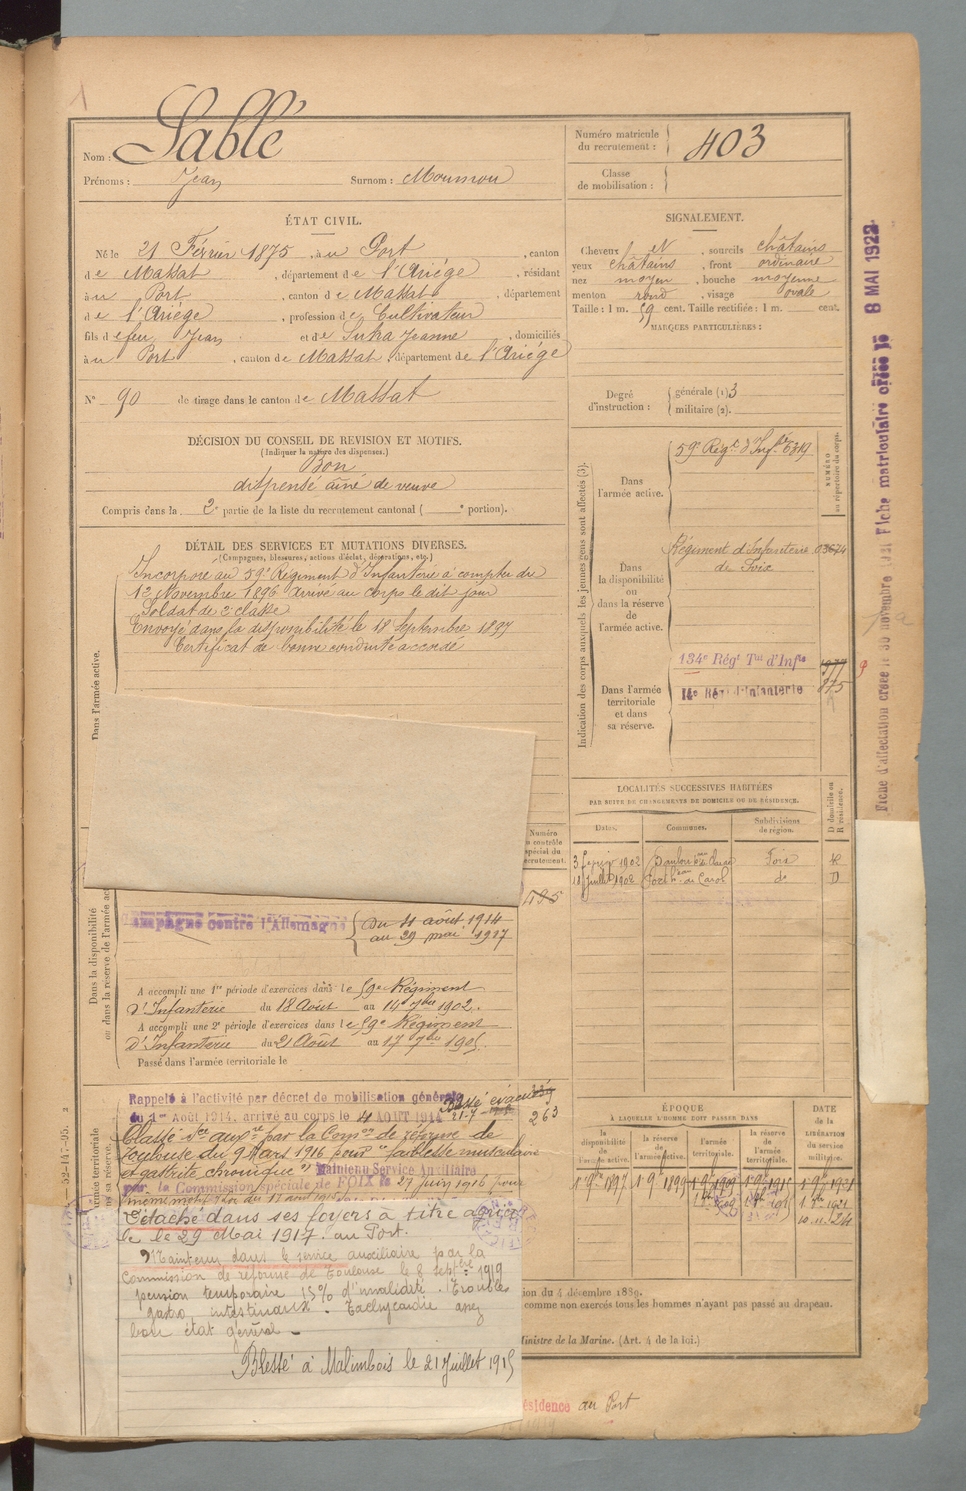 1
Nom : Sablé
Prénoms : Jean Surnom : Mounrou
Numéro matricule du recrutement : 403
Classe de mobilisation :
ÉTAT CIVIL.
Né le 21 Février 1875, à u Port, canton
de Massat, département de l'Ariége, résidant
à u Port, canton de Massat, département
de l'Ariége, profession de Cultivateur
fils de feu Jean et de Suka Jeanne, domiciliés
à u Port, canton de Massat, département de l'Ariége
N° 90 de tirage dans le canton de Massat
SIGNALEMENT.
Cheveux et, sourcils châtains
yeux châtains, front ordinaire
nez moyen, bouche moyenne
menton rond, visage ovale
Taille : 1 m. 59 cent. Taille rectifiée : 1 m. cent.
MARQUES PARTICULIÈRES :
Degré d'instruction : générale (1) 3
militaire (2).
DÉCISION DU CONSEIL DE REVISION ET MOTIFS.
(Indiquer la nature des dispenses.)
Bon
dispensé ainé de veuve
Compris dans la 2e partie de la liste du recrutement cantonal ( e portion).
DÉTAIL DES SERVICES ET MUTATIONS DIVERSES.
(Campagnes, blessures, actions d'éclat, décorations, etc.)
Dans l'armée active.
Incorporé au 59e Régiment d'Infanterie à compter du
12 Novembre 1896 arrivé au corps le dit jour
Soldat de 2e classe
Envoyé dans la disponibilité le 18 Septembre 1897
Certificat de bonne conduite accordé
Indication des corps auxquels les jeunes gens sont affectés (3).
NUMÉRO au répertoire du corps.
Dans l'armée active.
59e Régt d'Infie 6319
Dans la disponibilité ou dans la réserve de l'armée active.
Régiment d'Infanterie 03674
de Foix
Dans l'armée territoriale et dans sa réserve.
134e Régt Tal d'Infie
14e Régt d'Infanterie 875
LOCALITÉS SUCCESSIVES HABITÉES
PAR SUITE DE CHANGEMENTS DE DOMICILE OU DE RÉSIDENCE.
Dates. Communes. Subdivisions de région. D domicile ou R résidence.
3 février 1902 Foix R
18 Juillet 1902 do D
Numéro au contrôle spécial du recrutement.
485
Dans la disponibilité ou dans la réserve de l'armée ac
Campagne contre l'Allemagne { Du 4 août 1914
au 29 mai 1917
A accompli une 1re période d'exercices dans le 59e Régiment
d'Infanterie du 18 Août au 14 7bre 1902.
A accompli une 2e période d'exercices dans le 59e Régiment
d'Infanterie du 21 Août au 17 7bre 1905
Passé dans l'armée territoriale le
Rappelé à l'activité par décret de mobilisation générale
du 1er Août 1914, arrivé au corps le 4 AOUT 1914
263
Classé Sce auxre par la Comon de réforme de
Toulouse du 9 Mars 1916 pour "faiblesse musculaire
et gastrite chronique" Maintenu Service Auxiliaire
par la Commission spéciale de FOIX le 27 juin 1916 pour
même motif
Détaché dans ses foyers à titre agricole
le 29 Mai 1917. au Port.
Maintenu dans le service auxiliaire par la
Commission de réforme de Toulouse le 8 septbre 1919
pension temporaire 15% d'invalidité. Troubles
gastro intestinaux. Tachycardie assez
bon état général.
Blessé à Malimbois le 21 Juillet 1915
ÉPOQUE
À LAQUELLE L'HOMME DOIT PASSER DANS
la disponibilité de l'armée active. la réserve de l'armée active. l'armée territoriale. la réserve de l'armée territoriale.
DATE de la LIBÉRATION du service militaire.
1er 9bre 1897 1er 9bre 1899 1er 9bre 1909 1er 9bre 1915 1er 9bre 1921
10.11.24
ion du 4 décembre 1889.
comme non exercés tous les hommes n'ayant pas passé au drapeau.
Ministre de la Marine. (Art. 4 de la loi.)
ésidence au Port
Fiche d'affectation créée le 30 novembre
Fiche matriculaire créée le 8 MAI 1922